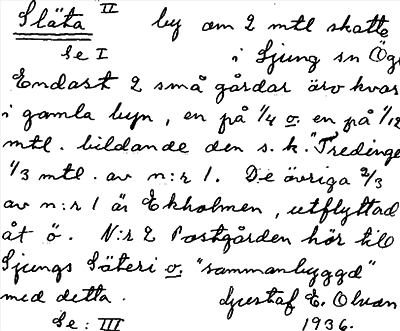 Släta II by om 2 mtl skatte
Se I i Ljung sn Ög
Endast 2 små gårdar äro kvar
i gamla byn, en på 1/4 o. en på 1/12
mtl. bildande den s.k. "Tredinge
1/3 mtl. av n:r 1. De övriga 2/3
av n:r 1 är Ekholmen, utflyttad
åt ö. N:r 2 Postgården hör till
Ljungs Säteri o. "sammanbyggd"
med detta. Gustaf E. Olson
Se: III 1936.